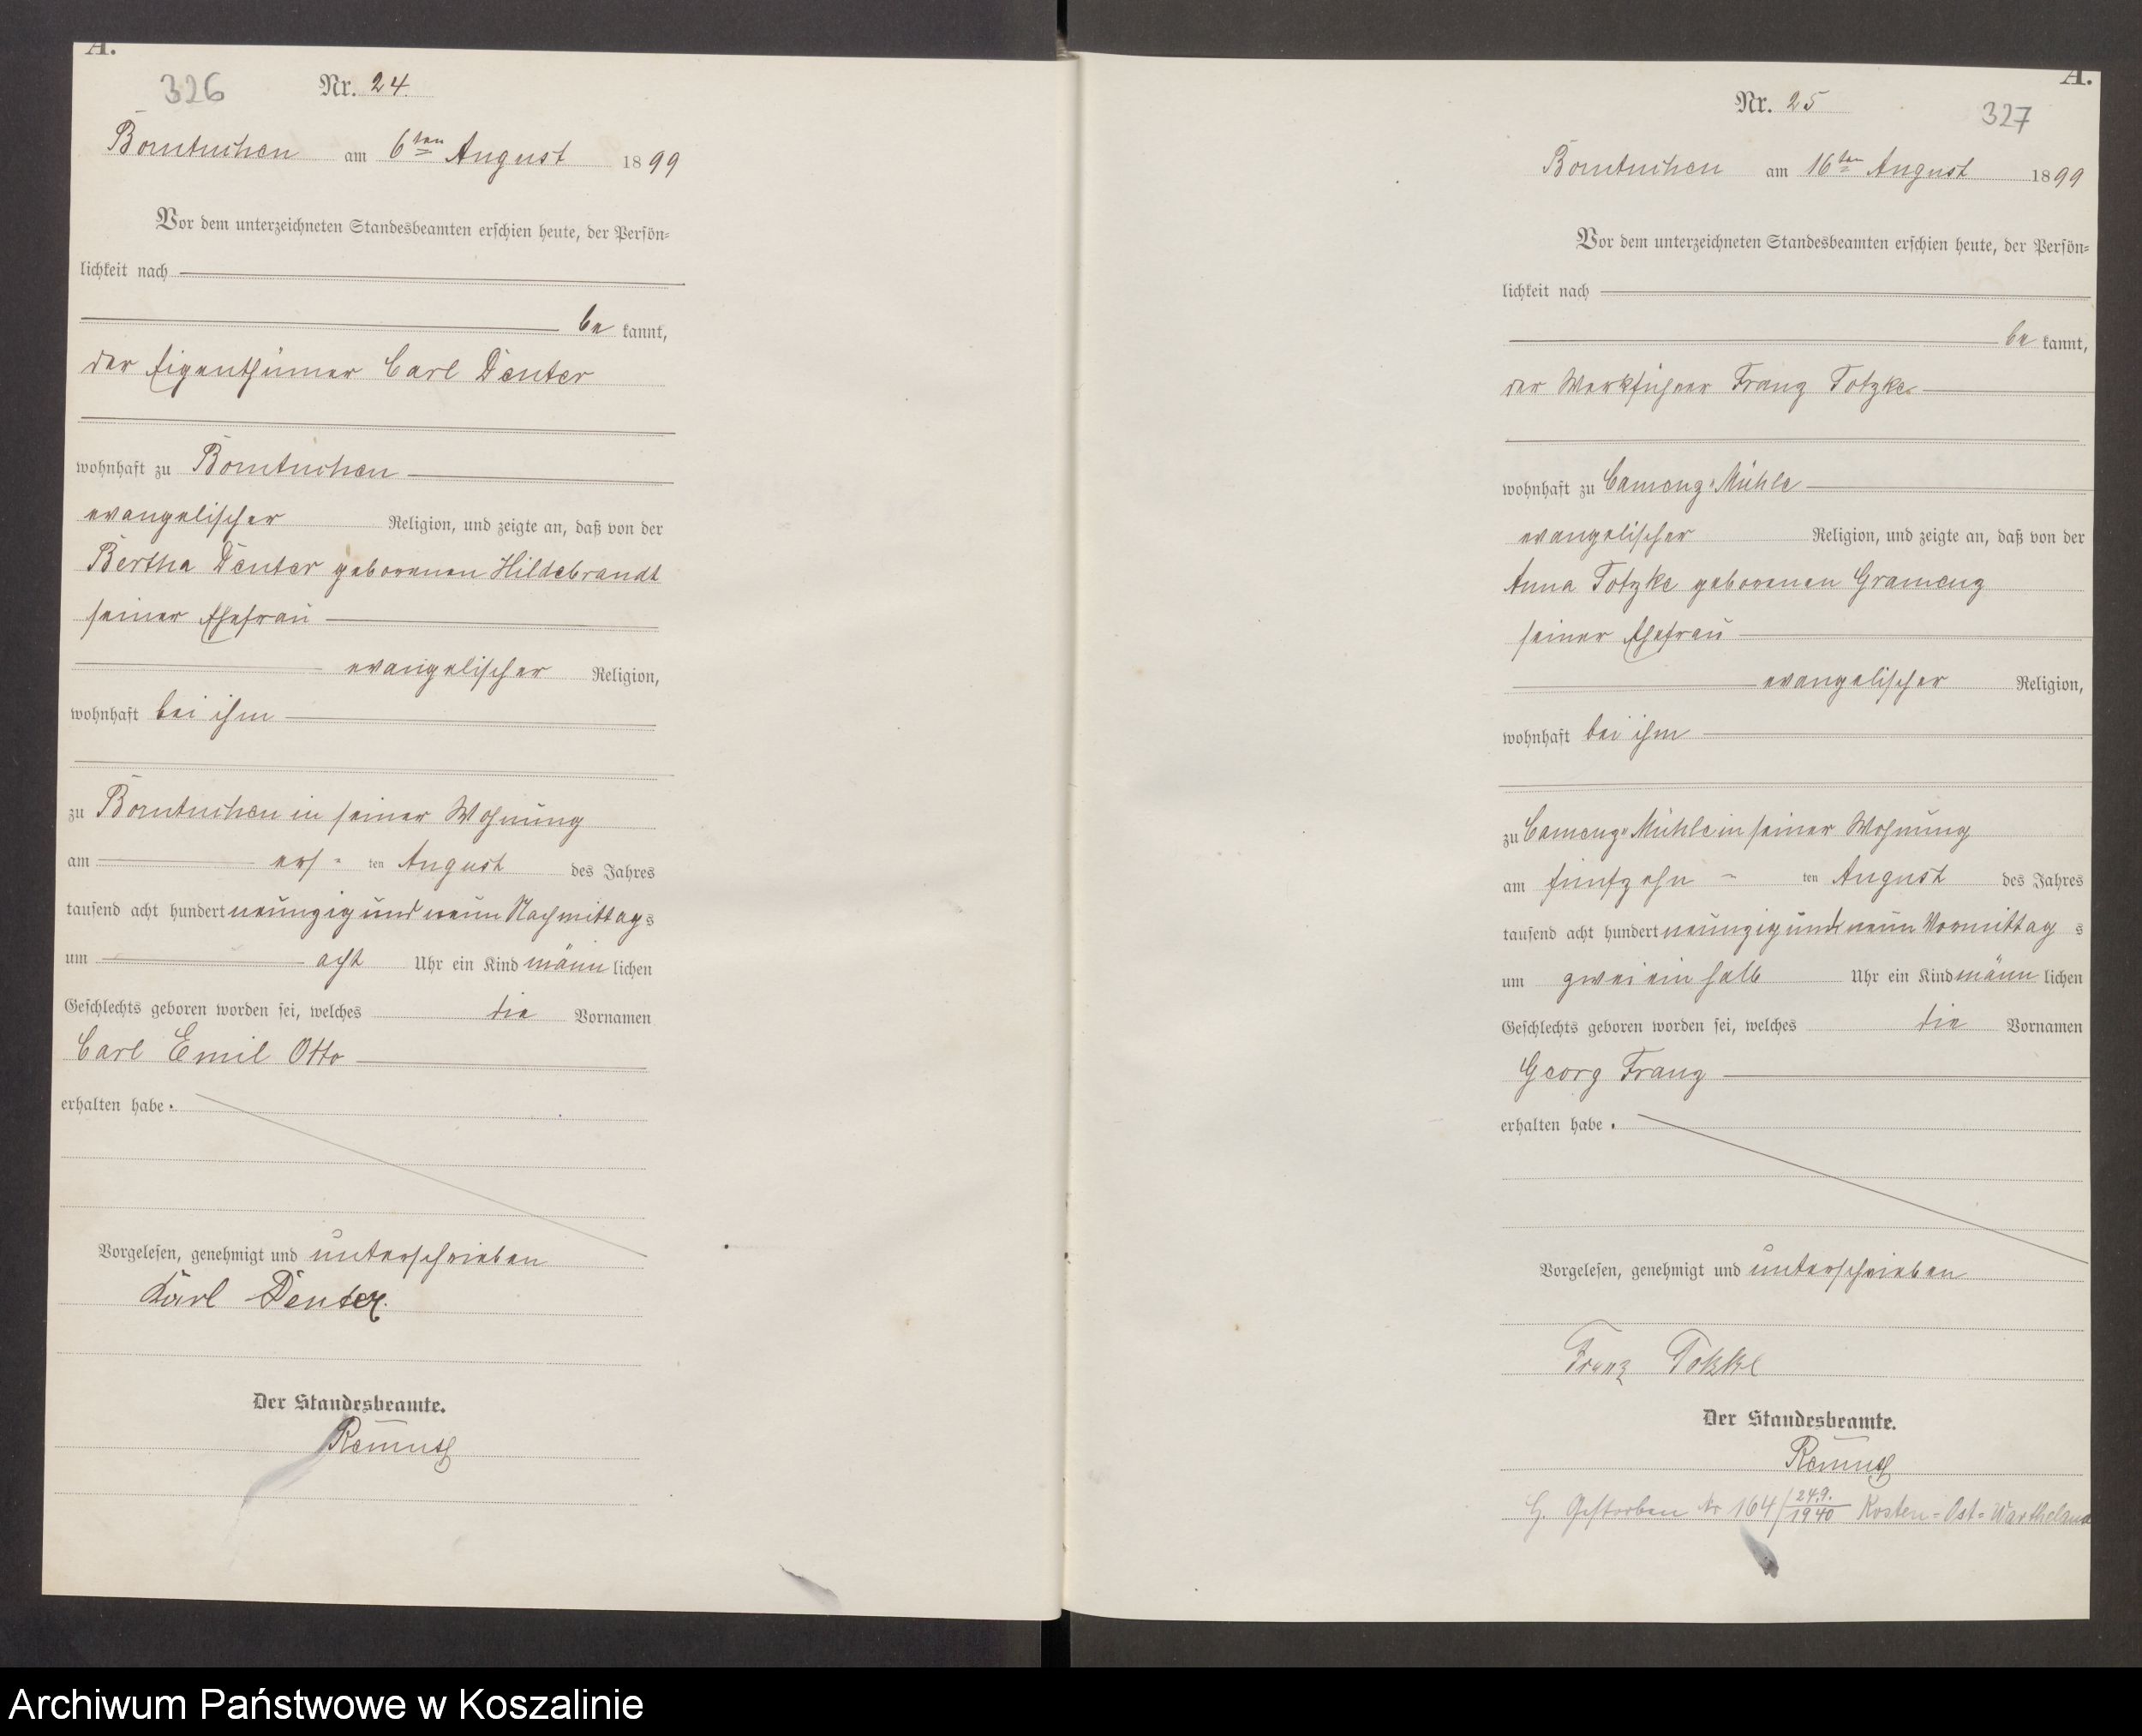 A.
326
Nr. 24.
Borntuchen am 6ten August 1899
Vor dem unterzeichneten Standesbeamten erschien heute, der Persön-
lichkeit nach
be kannt,
der Eigenthümer Carl Denter
wohnhaft zu Borntuchen
evangelischer Religion, und zeigte an, daß von der
Bertha Denter geborenen Hildebrandt
seiner Ehefrau
evangelischer Religion,
wohnhaft bei ihm
zu Borntuchen in seiner Wohnung
am ers- ten August des Jahres
tausend acht hundert neunzig und neun Nachmittags
um acht Uhr ein Kind männ lichen
Geschlechts geboren worden sei, welches die Vornamen
Carl Emil Otto
erhalten habe.
Vorgelesen, genehmigt und unterschrieben
Karl Denter.
Der Standesbeamte.
A.
Nr. 25
327
Borntuchen am 16ten August 1899
Vor dem unterzeichneten Standesbeamten erschien heute, der Persön-
lichkeit nach
be kannt,
der Werkführer Franz Totzke
wohnhaft zu Camenz-Mühle
evangelischer Religion, und zeigte an, daß von der
Anna Totzke geborenen Gramenz
seiner Ehefrau
evangelischer Religion,
wohnhaft bei ihm
zu Camenz-Mühle in seiner Wohnung
am fünfzehn - ten August des Jahres
tausend acht hundert neunzig und neun Vormittag s
um zwei ein halb Uhr ein Kind männ lichen
Geschlechts geboren worden sei, welches die Vornamen
Georg Franz
erhalten habe.
Vorgelesen, genehmigt und unterschrieben
Franz Totzke
Der Standesbeamte.
G. Gestorben Nr 164/24.9.1940 Kosten-Ost-Wartheland
Archiwum Państwowe w Koszalinie